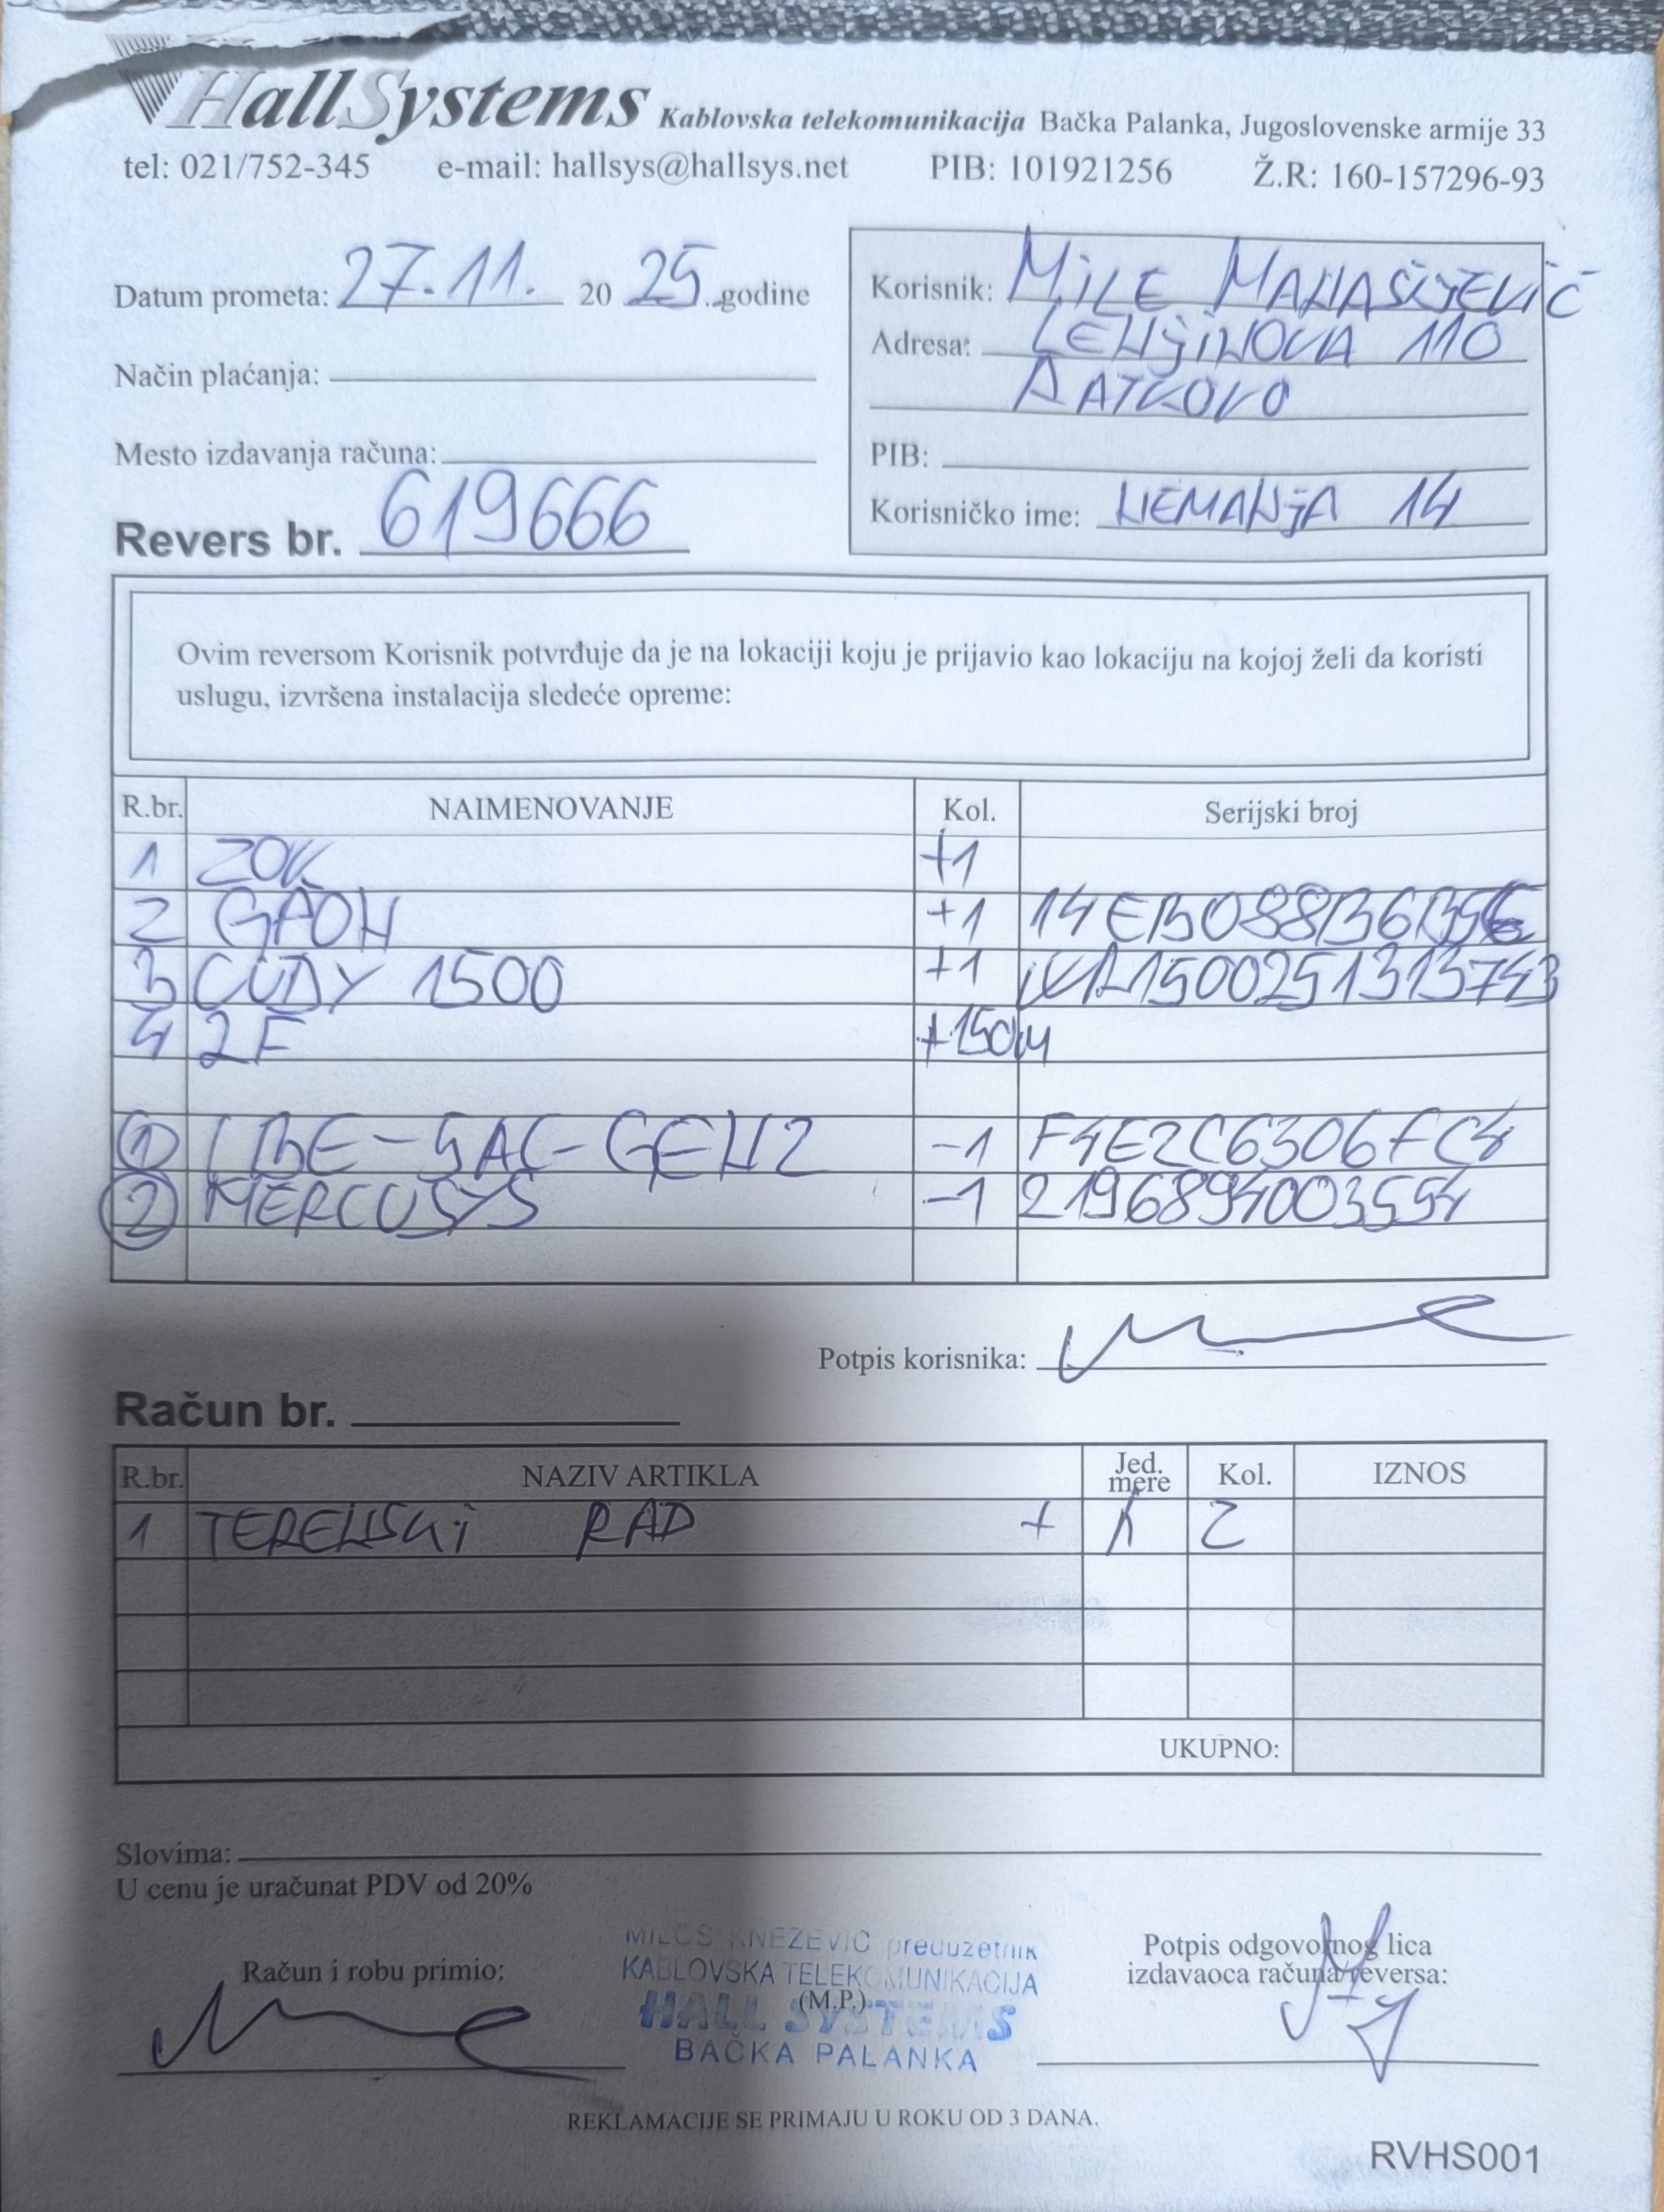 HallSystems Kablovska telekomunikacija Bačka Palanka, Jugoslovenske armije 33
tel: 021/752-345 e-mail: hallsys@hallsys.net PIB: 101921256 Ž.R: 160-157296-93
Datum prometa: 27.11. 20 25. godine
Način plaćanja:
Mesto izdavanja računa:
Revers br. 619666
Korisnik: MiLE MANASiJEViĆ
Adresa: LENJiNOVA 110
RATKOVO
PIB:
Korisničko ime: NEMANJA 14
Ovim reversom Korisnik potvrđuje da je na lokaciji koju je prijavio kao lokaciju na kojoj želi da koristi
uslugu, izvršena instalacija sledeće opreme:
R.br. NAIMENOVANJE Kol. Serijski broj
1 ZOK +1
2 GPON +1
3 CUDY 1500 +1
4 2F +150M
1 LBE-5AC-GEN2 -1 F4E2C6306FC4
2 MERCUSYS -1 2196894003554
Potpis korisnika:
Račun br.
R.br. NAZIV ARTIKLA Jed. mere Kol. IZNOS
1 TERENSKi RAD + K 2
UKUPNO:
Slovima:
U cenu je uračunat PDV od 20%
Račun i robu primio:
MILOŠ KNEŽEVIĆ preduzetnik
KABLOVSKA TELEKOMUNIKACIJA
(M.P.)
HALL SYSTEMS
BAČKA PALANKA
Potpis odgovornog lica
izdavaoca računa/reversa:
REKLAMACIJE SE PRIMAJU U ROKU OD 3 DANA.
RVHS001